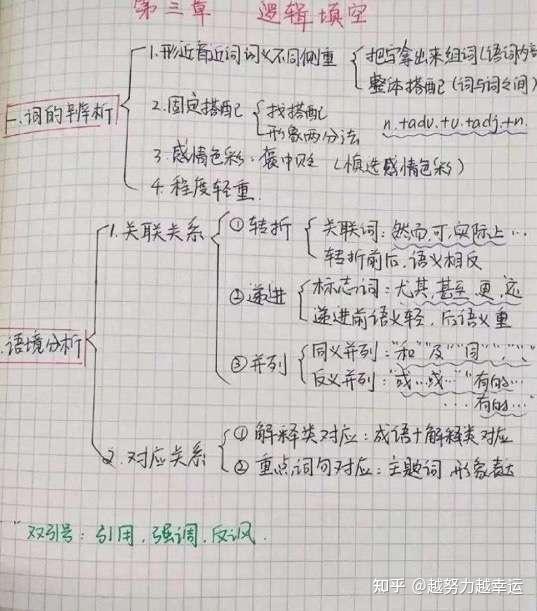 第三章 逻辑填空
一.词的辨析
1.形近音近词词义不同侧重
把字拿出来组词(语词内部
整体搭配(词与词之间)
2.固定搭配
找搭配
形象两分法
n.+adv.+v.+adj.+n.
3.感情色彩:褒中贬(慎选感情色彩)
4.程度轻重.
.语境分析
1.关联关系
①转折
关联词:然而,可,实际上…
转折前后,语义相反
②递进
标志词:尤其,甚至,更,还
递进前语义轻,后语义重
③并列
同义并列:"和""及""同""、"
反义并列:"或…或…""有的…
…有的…"
2.对应关系
①解释类对应:成语+解释类对应
②重点词句对应:主题词,形象表达
"双引号:引用,强调,反讽.
知乎 @越努力越幸运